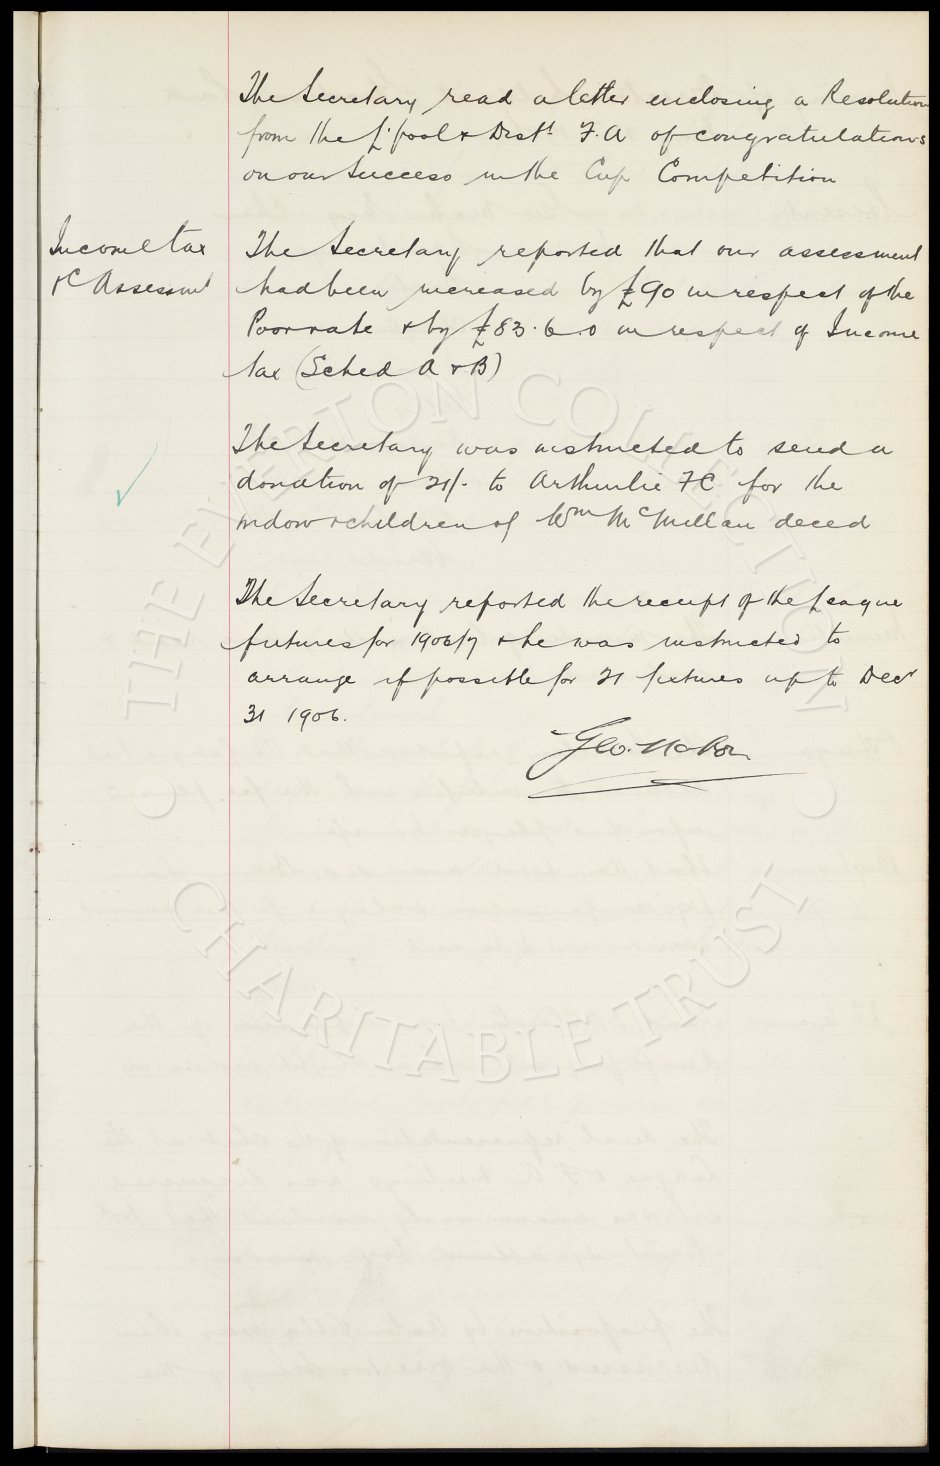 The Secretary read a letter enclosing a Resolution
from the L'pool & Distt. F.A of congratulations
on our Success in the Cup Competition
Income tax
&c Assessmt
The Secretary reported that our assessment
had been increased by £90 in respect of the
Poor rate & by £83.6.0 in respect of Income
tax (Sched A & B)
The Secretary was instructed to send a
donation of 21/- to Arthurlie FC for the
widow & children of Wm McMillan deced
The Secretary reported the receipt of the League
fixtures for 1906/7 & he was instructed to
arrange if possible for 21 fixtures up to Decr
31 1906.
Geo. Mahon
THE EVERTON COLLECTION
CHARITABLE TRUST